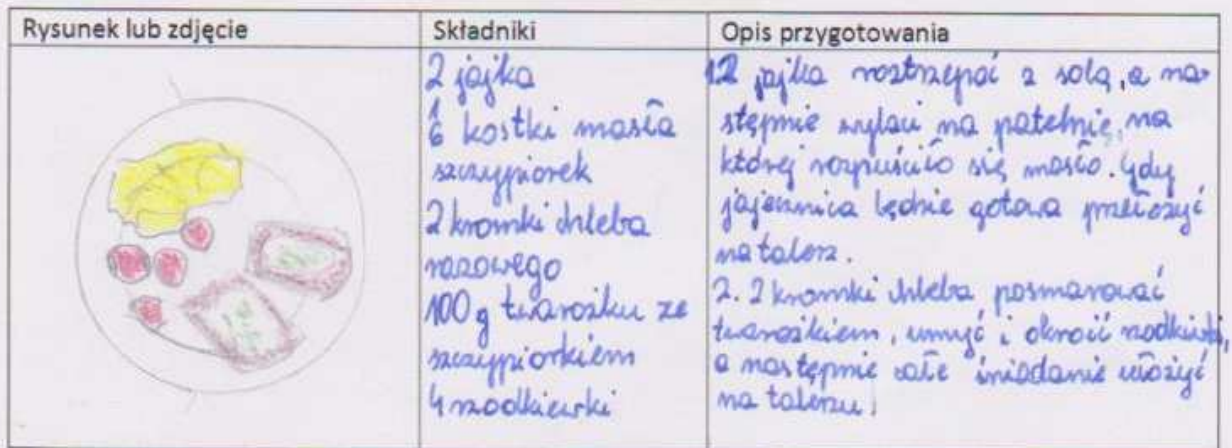 Rysunek lub zdjęcie
Składniki
Opis przygotowania
2 jajka
1/6 kostki masła
szczypiorek
2 kromki chleba
razowego
100 g twarożku ze
szczypiorkiem
4 rzodkiewki
1 2 jajka roztrzepać z solą, a na-
stępnie wylać na patelnię, na
której rozpuściło się masło. Gdy
jajecznica będzie gotowa przełożyć
na talerz.
2. 2 kromki chleba posmarować
twarożkiem, umyć i okroić rzodkiewki,
a następnie całe śniadanie ułożyć
na talerzu.